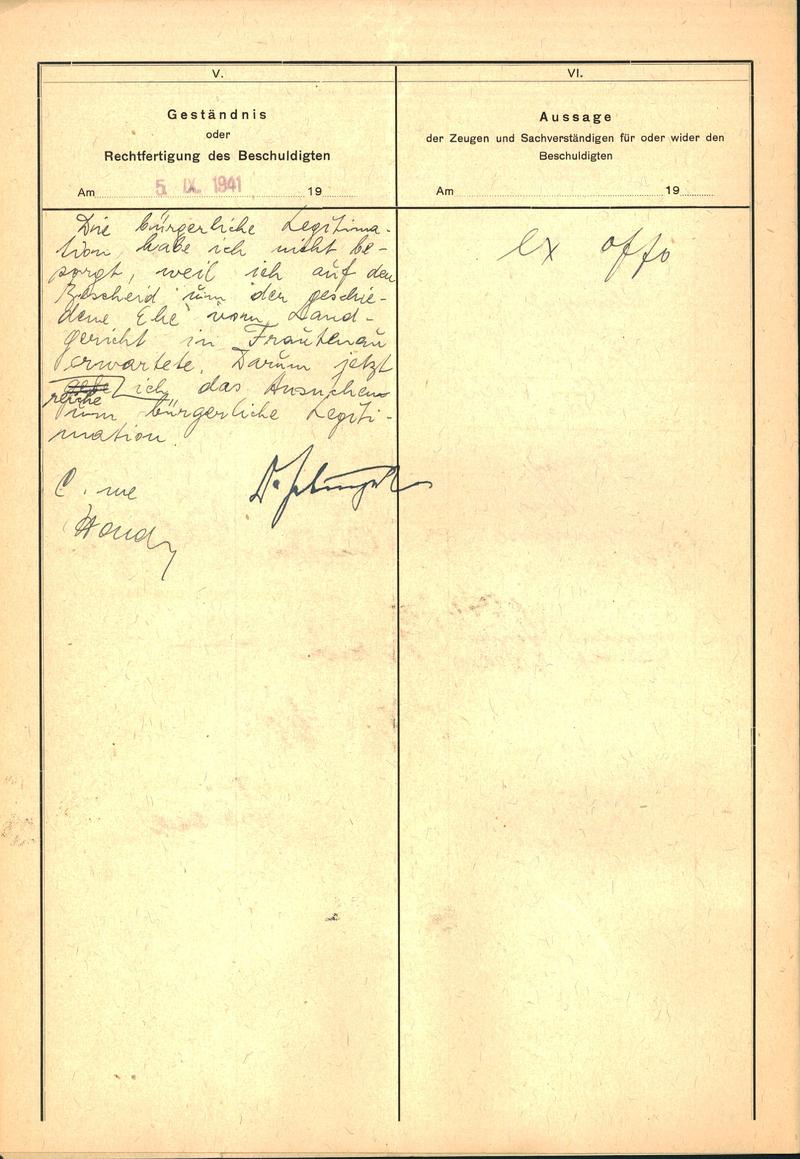 V.
Geständnis
oder
Rechtfertigung des Beschuldigten
Am 5. IX. 1941 19
Die bürgerliche Legitima-
tion habe ich nicht be-
sorgt, weil ich auf den
Bescheid um der geschie-
dene Ehe vom Land-
gericht in Trautenau
erwartete. Darum jetzt
reiche ich das Ansuchen
um bürgerliche Legiti-
mation.
VI.
Aussage
der Zeugen und Sachverständigen für oder wider den
Beschuldigten
Am 19
ex offo